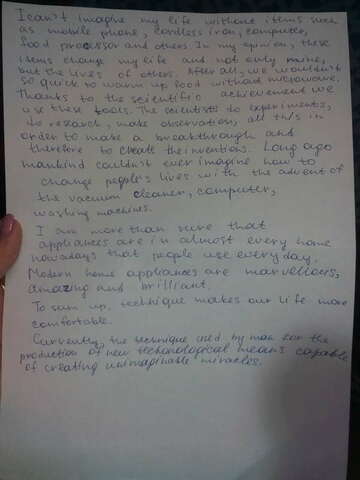 I can't imagine my life without items such
as mobile phone, cordless iron, computer,
food processor and others. In my opinion, these
items change my life and not only mine,
but the lives of others. After all, we wouldn't
so quick to warm up food without microwave.
Thanks to the scientific achievement we
use these tools. The scientists do experimentes,
do research, make observation, all this in
order to make a breakthrough and
therefore to create the inventions. Long ago
mankind couldn't ever imagine how to
change people's lives with the advent of
the vacuum cleaner, computer,
washing machines.
I am more than sure that
appliances are in almost every home
nowadays that people use everyday.
Modern home appliances are marvellous,
amazing and brilliant.
To sum up, technique makes our life more
comfortable.
Currently, the technique used by man for the
production of new techonological means capable
of creating unimaginable miracles.